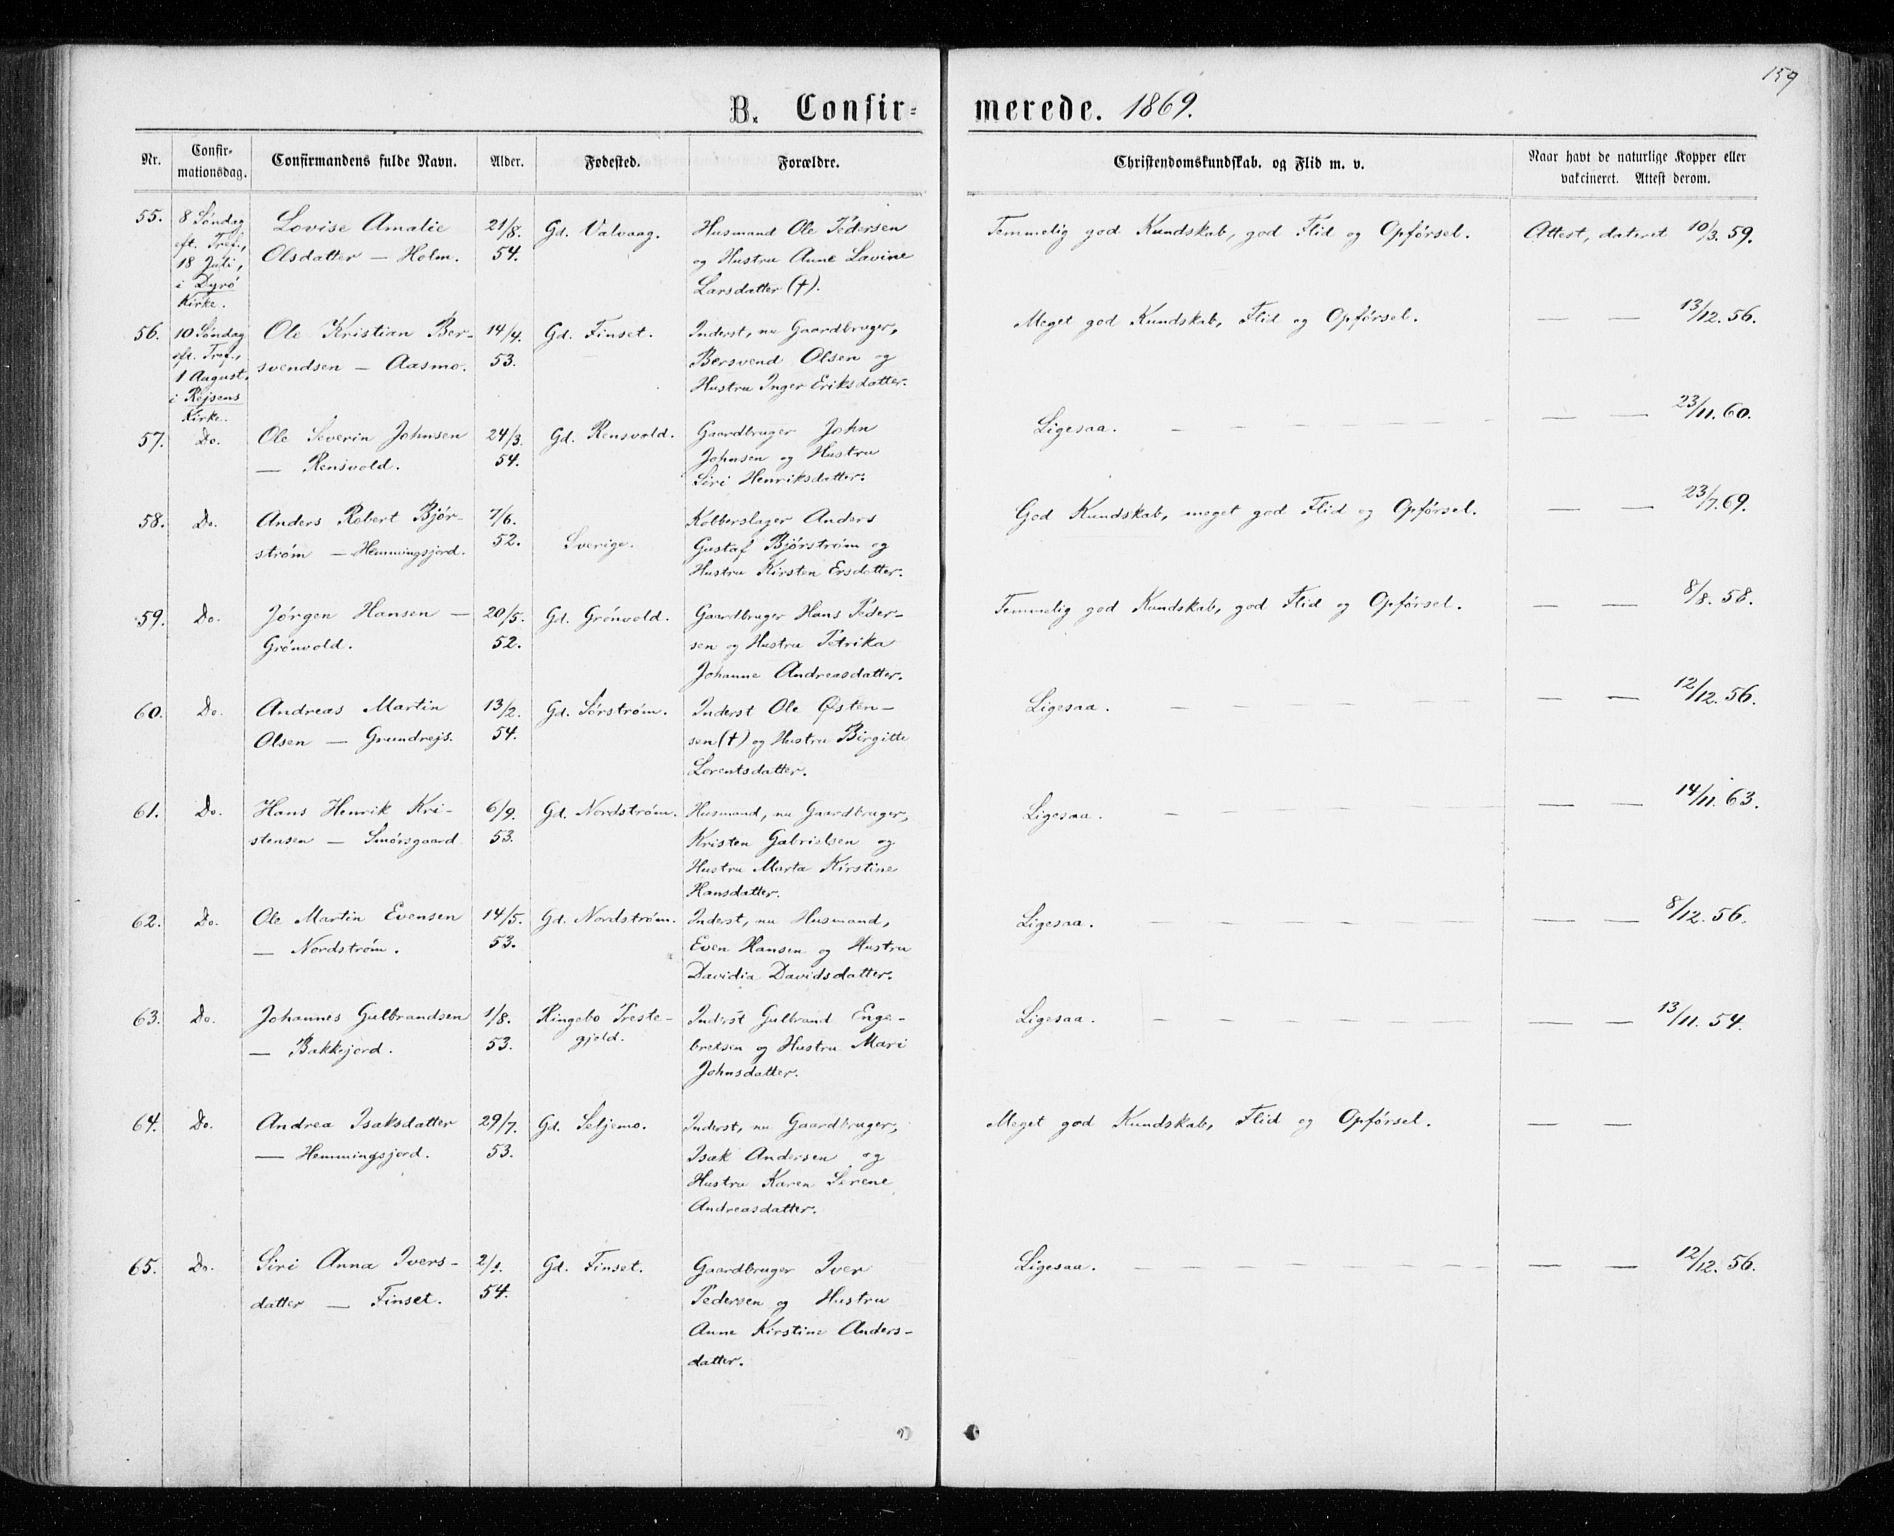 159
B. Confir- merede. 1869.
Nr.
Confir-
mationsdag.
Confirmandens fulde Navn.
Alder.
Fødested.
Forældre.
Christendomskundskab. og Flid m. v.
Naar havt de naturlige Kopper eller
vakcineret. Attest derom.
55.
8 Søndag
eft. Tref.,
18 Juli,
i Dyrö
Kirke.
Lovise Amalie
Olsdatter — Holm.
21/8.
54.
Gd. Valvaag.
Husmand Ole Pedersen
og Hustru Anne Lavine
Larsdatter (†).
Temmelig god Kundskab, god Flid og Opførsel.
Attest, dateret 10/3. 59.
56.
10 Søndag
eft. Tref.,
1 August,
i Rejsens
Kirke.
Ole Kristian Ber-
svendsen — Aasmo.
14/4.
53.
Gd. Finset.
Inderst, nu Gaardbruger,
Bersvend Olsen og
Hustru Inger Eriksdatter.
Meget god Kundskab, Flid og Opførsel.
— — 13/12. 56.
57.
Do.
Ole Severin Johnsen
— Rensvold.
24/3.
54.
Gd. Rensvold.
Gaardbruger John
Johnsen og Hustru
Siri Henriksdatter.
Ligesaa. — — — — — — —
— — 23/11. 60.
58.
Do.
Anders Robert Bjør-
strøm — Hemmingsjord.
7/6.
52.
Sverige.
Kobberslager Anders
Gustaf Bjørstrøm og
Hustru Kirsten Ersdatter.
God Kundskab, meget god Flid og Opførsel.
— — 23/7. 69.
59.
Do.
Jörgen Hansen —
Grönvold.
20/5.
52.
Gd. Grönvold.
Gaardbruger Hans Peder-
sen og Hustru Petrika
Johanne Andreasdatter.
Temmelig god Kundskab, god Flid og Opførsel.
— — 8/8. 58.
60.
Do.
Andreas Martin
Olsen — Grundrejs.
13/2.
54.
Gd. Sørstrøm.
Inderst Ole Østen-
sen (†) og Hustru Birgitte
Lorentsdatter.
Ligesaa. — — — — — — —
— — 12/12. 56.
61.
Do.
Hans Henrik Kri-
stensen — Smörsgaard.
6/9.
53.
Gd. Nordstrøm.
Husmand, nu Gaardbruger,
Kristen Gabrielsen og
Hustru Marta Kirstine
Hansdatter.
Ligesaa. — — — — — — —
— — 14/11. 63.
62.
Do.
Ole Martin Evensen
— Nordstrøm.
14/5.
53.
Gd. Nordstrøm.
Inderst, nu Husmand,
Even Hansen og Hustru
Davidia Davidsdatter.
Ligesaa. — — — — — — —
— — 8/12. 56.
63.
Do.
Johannes Gulbrandsen
— Bakkejord.
1/8.
53.
Ringebo Preste-
gjeld.
Inderst Gulbrand Enge-
bretsen og Hustru Mari
Johnsdatter.
Ligesaa. — — — — — — —
— — 13/11. 54.
64.
Do.
Andrea Isaksdatter
— Hemmingsjord.
29/7.
53.
Gd. Seljemo.
Inderst, nu Gaardbruger,
Isak Andersen og
Hustru Karen Serene
Andreasdatter.
Meget god Kundskab, Flid og Opførsel.
— —
65.
Do.
Siri Anna Ivers-
datter — Finset.
54.
Gd. Finset.
Gaardbruger Iver
Pedersen og Hustru
Anne Kirstine Anders-
datter.
Ligesaa. — — — — — — —
— — 12/12. 56.